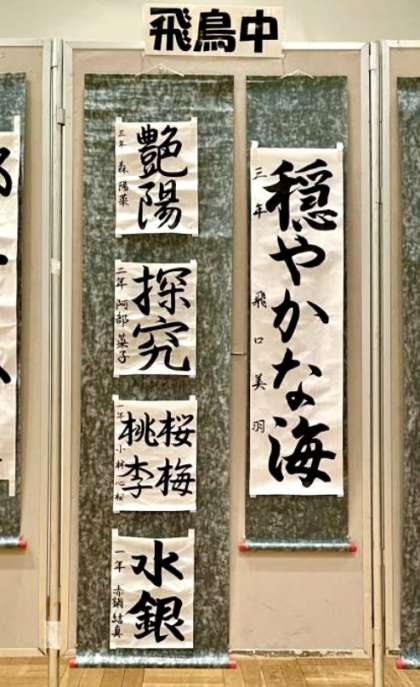 飛鳥中
穏やかな海
三年 飛口美羽
艶陽
三年 森陽葉
探究
二年 阿部菜子
桜梅
桃李
一年 小林心桜
水銀
一年 赤鍋結真